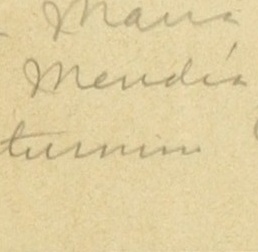 Maria
Mendia
turnin